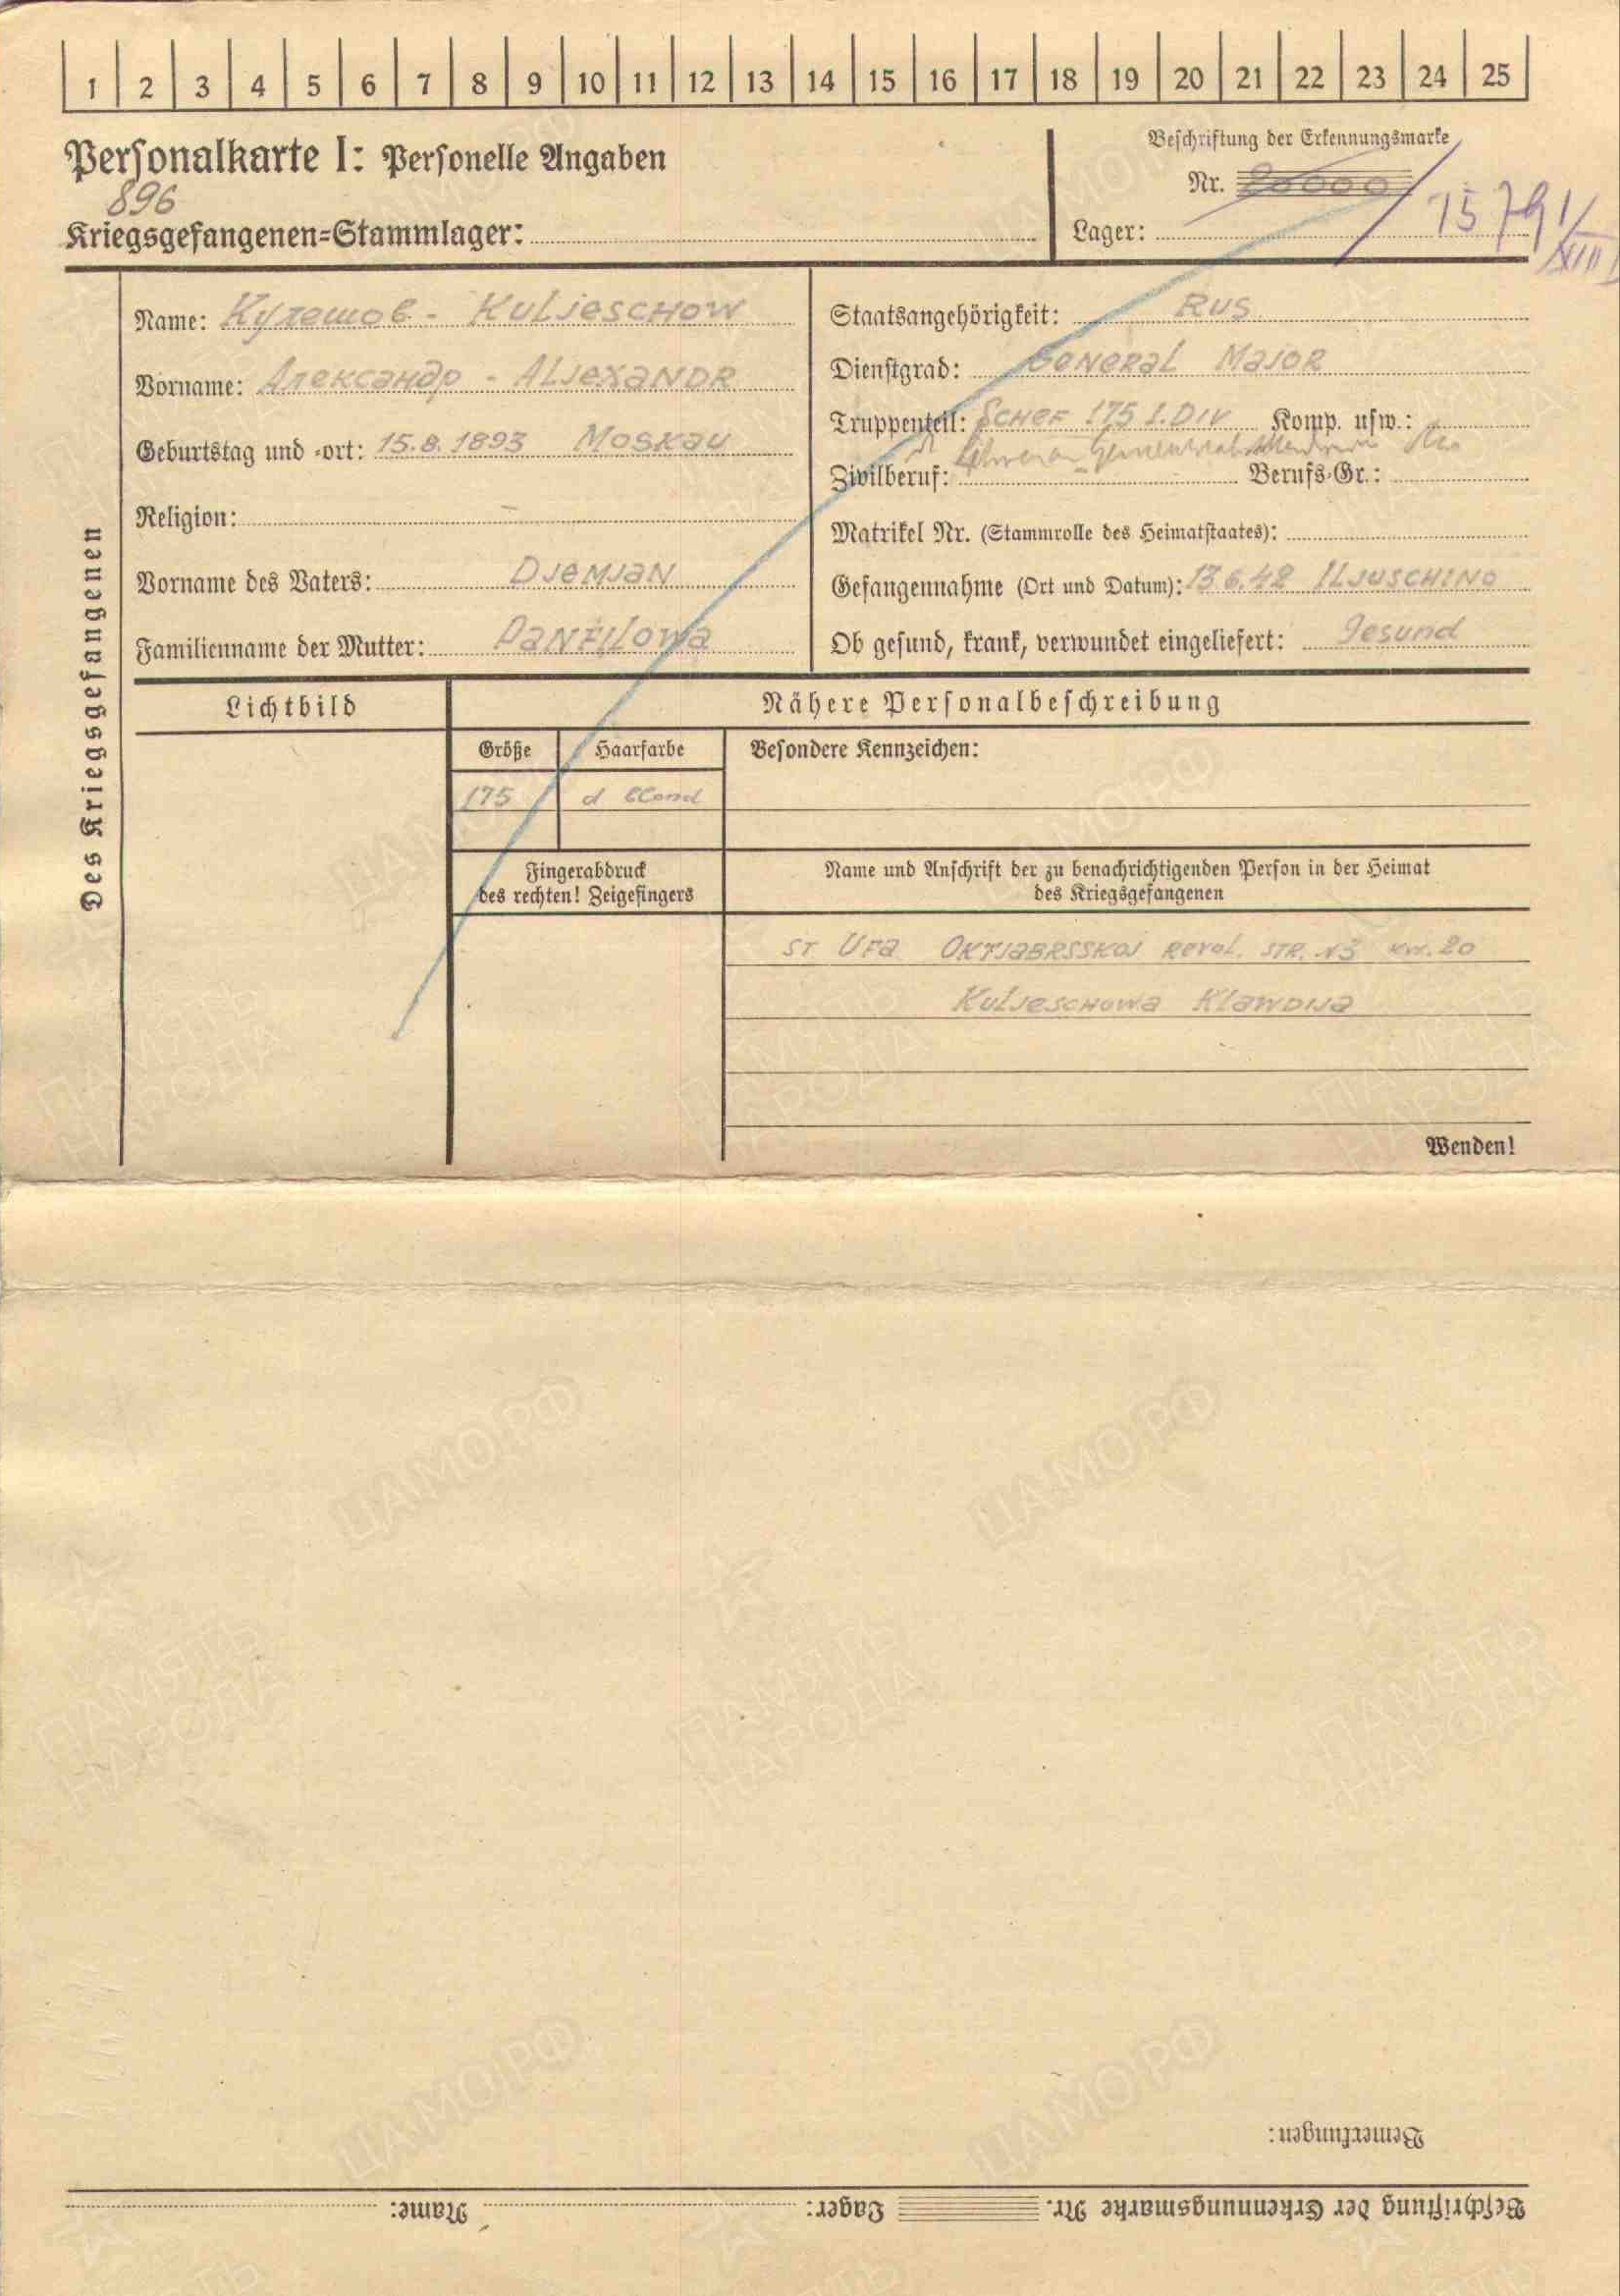 1 2 3 4 5 6 7 8 9 10 11 12 13 14 15 16 17 18 19 20 21 22 23 24 25
Personalkarte I: Personelle Angaben
896
Kriegsgefangenen-Stammlager:
Beschriftung der Erkennungsmarke
Nr. 20000
15791/XIII
Lager:
Des Kriegsgefangenen
Name: Кулешов - KULJESCHOW
Vorname: Александр - ALJEXANDR
Geburtstag und -ort: 15.8.1893 MOSKAU
Religion: —
Vorname des Vaters: DJEMJAN
Familienname der Mutter: PANFILOWA
Staatsangehörigkeit: RUS
Dienstgrad: GENERAL MAJOR
Truppenteil: SCHEF 175 I. DIV Komp. usw.:
Zivilberuf: Berufs-Gr.:
Matrikel Nr. (Stammrolle des Heimatstaates):
Gefangennahme (Ort und Datum): 13.6.42 ILJUSCHINO
Ob gesund, krank, verwundet eingeliefert: gesund
Lichtbild
Nähere Personalbeschreibung
Größe Haarfarbe Besondere Kennzeichen:
175 d blond
Fingerabdruck
des rechten! Zeigefingers
Name und Anschrift der zu benachrichtigenden Person in der Heimat
des Kriegsgefangenen
ST UFA OKTJABRSSKOJ REVOL. STR. N3 KW. 20
KULJESCHOWA KLAWDIJA
Wenden!
Bemerkungen:
Beschriftung der Erkennungsmarke Nr. Lager: Name:
ЦАМО.РФ
ПАМЯТЬ
НАРОДА